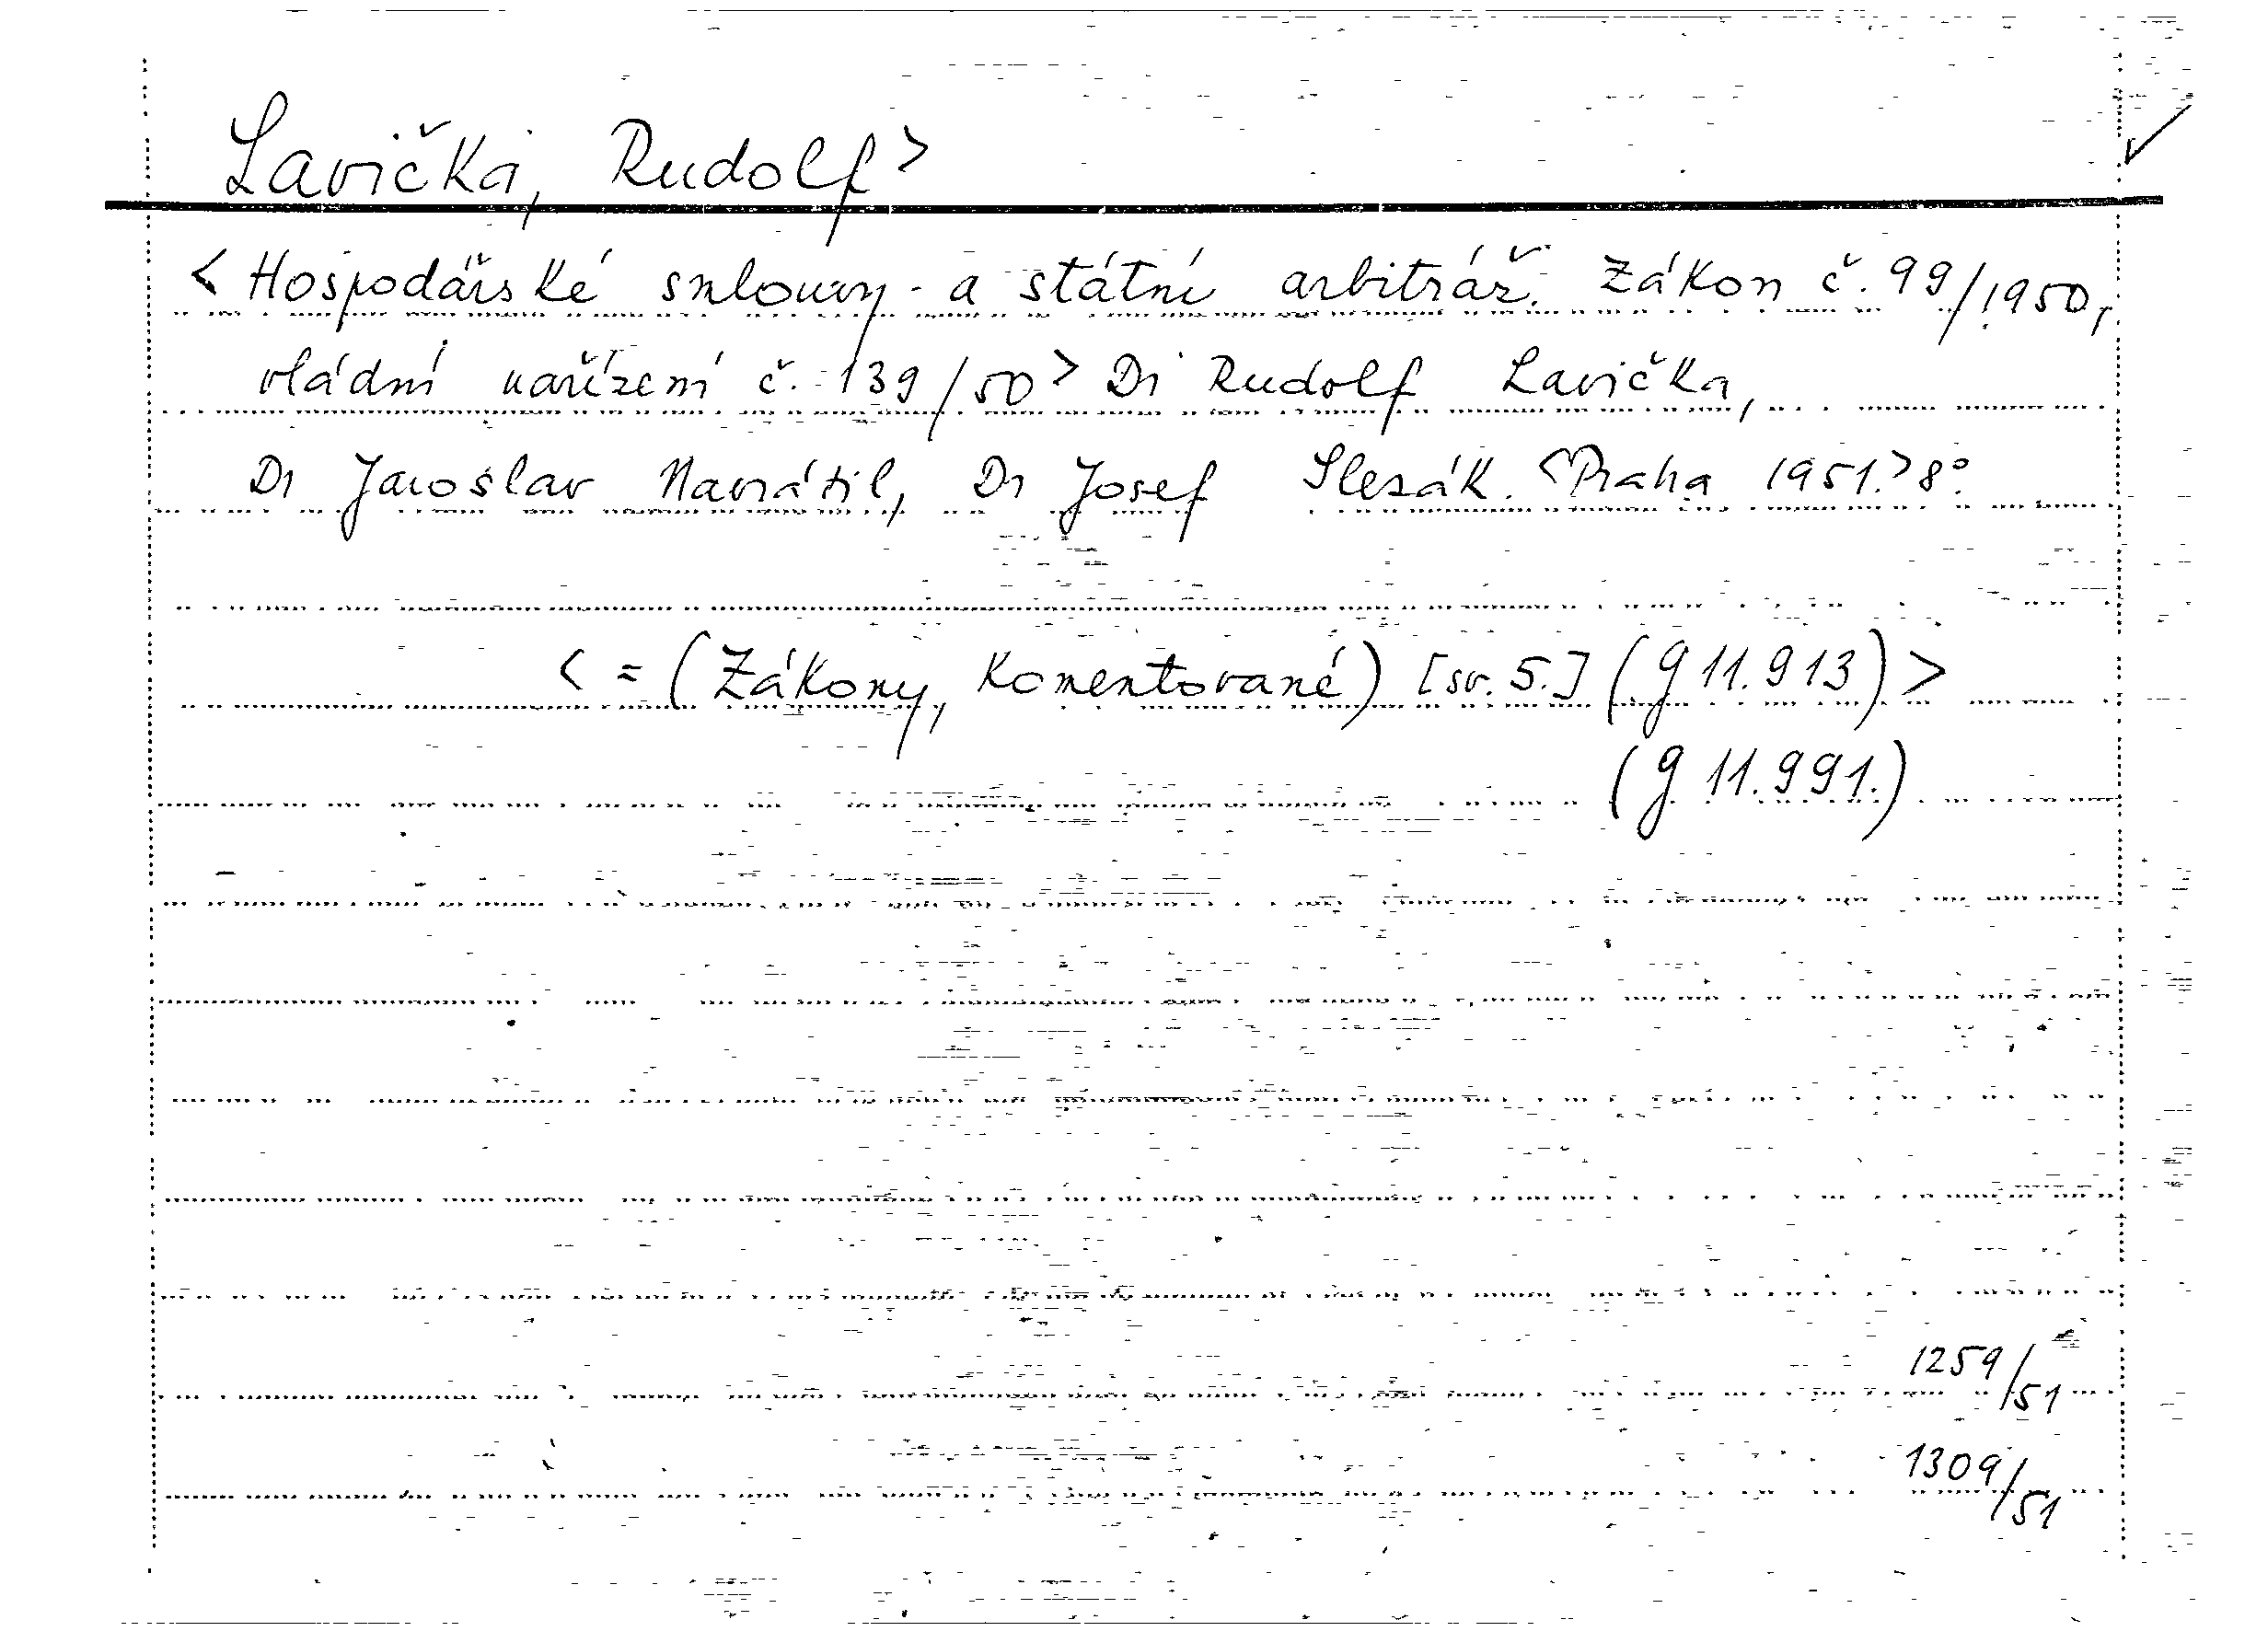 Lavička, Rudolf>
<Hospodářské smlouvy a státní arbitráž. Zákon č. 99/1950,
vládní nařízení č. 139/50> Dr Rudolf Lavička,
Dr Jaroslav Navrátil, Dr Josef Slezák. <Praha 1951.> 8°.
<= (Zákony, Komentované) [sv. 5.] (g 11.913)>
(g 11.991.)
1259/51
1309/51